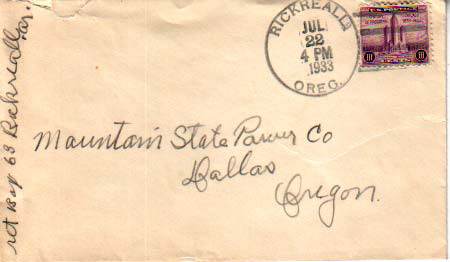 RICKREALL
JUL
22
4 PM
1933
OREG.
U.S. POSTAGE
III III
Mountain State Power Co
Dallas
Oregon.
ret Box 63 Rickreall or.